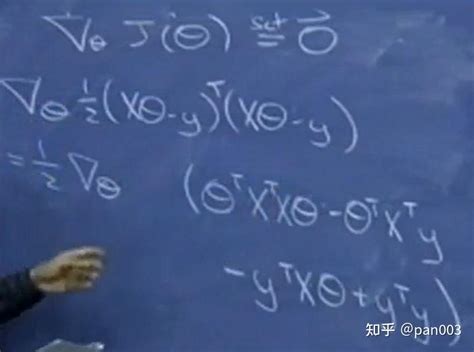 ∇_θ J(θ) set= 0⃗
∇_θ ½(Xθ-y)ᵀ(Xθ-y)
= ½ ∇_θ (θᵀXᵀXθ - θᵀXᵀy
- yᵀXθ + yᵀy)
知乎 @pan003